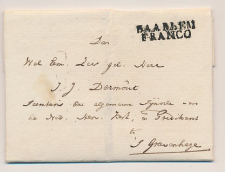 HAARLEM
FRANCO
Den
Wel Eerw. Zeer gel. Heer
J. J. Dermout
Secretaris der algemeene Synode van
de Ned. Herv. Kerk, en Predikant
te
's Gravenhage